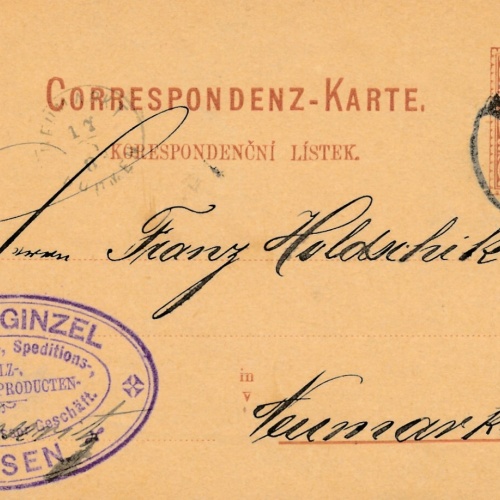 CORRESPONDENZ-KARTE.
KORESPONDENČNÍ LÍSTEK.
Herrn Franz Holdschik
GINZEL
, Speditions-,
LZ-,
PRODUCTEN-
Geschäft.
SEN.
in
V
Neumark